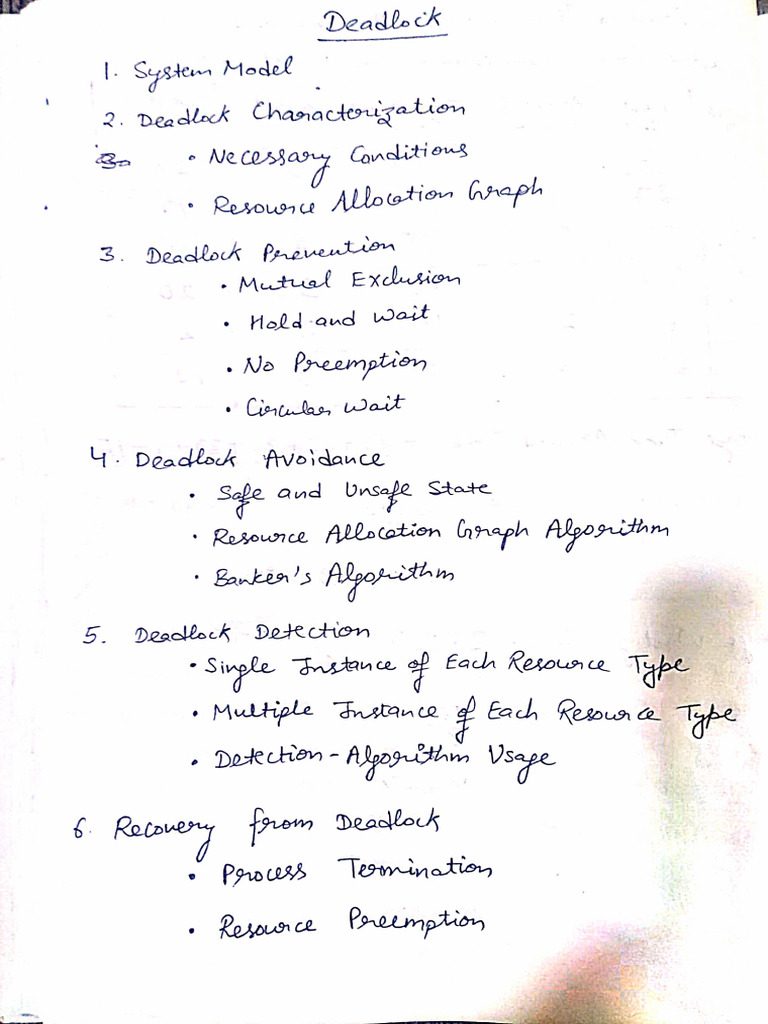 Deadlock
1. System Model
2. Deadlock Characterization
• Necessary Conditions
• Resource Allocation Graph
3. Deadlock Prevention
• Mutual Exclusion
• Hold and Wait
• No Preemption
• Circular Wait
4. Deadlock Avoidance
• Safe and Unsafe State
• Resource Allocation Graph Algorithm
• Banker's Algorithm
5. Deadlock Detection
• Single Instance of Each Resource Type
• Multiple Instance of Each Resource Type
• Detection-Algorithm Usage
6. Recovery from Deadlock
• Process Termination
• Resource Preemption